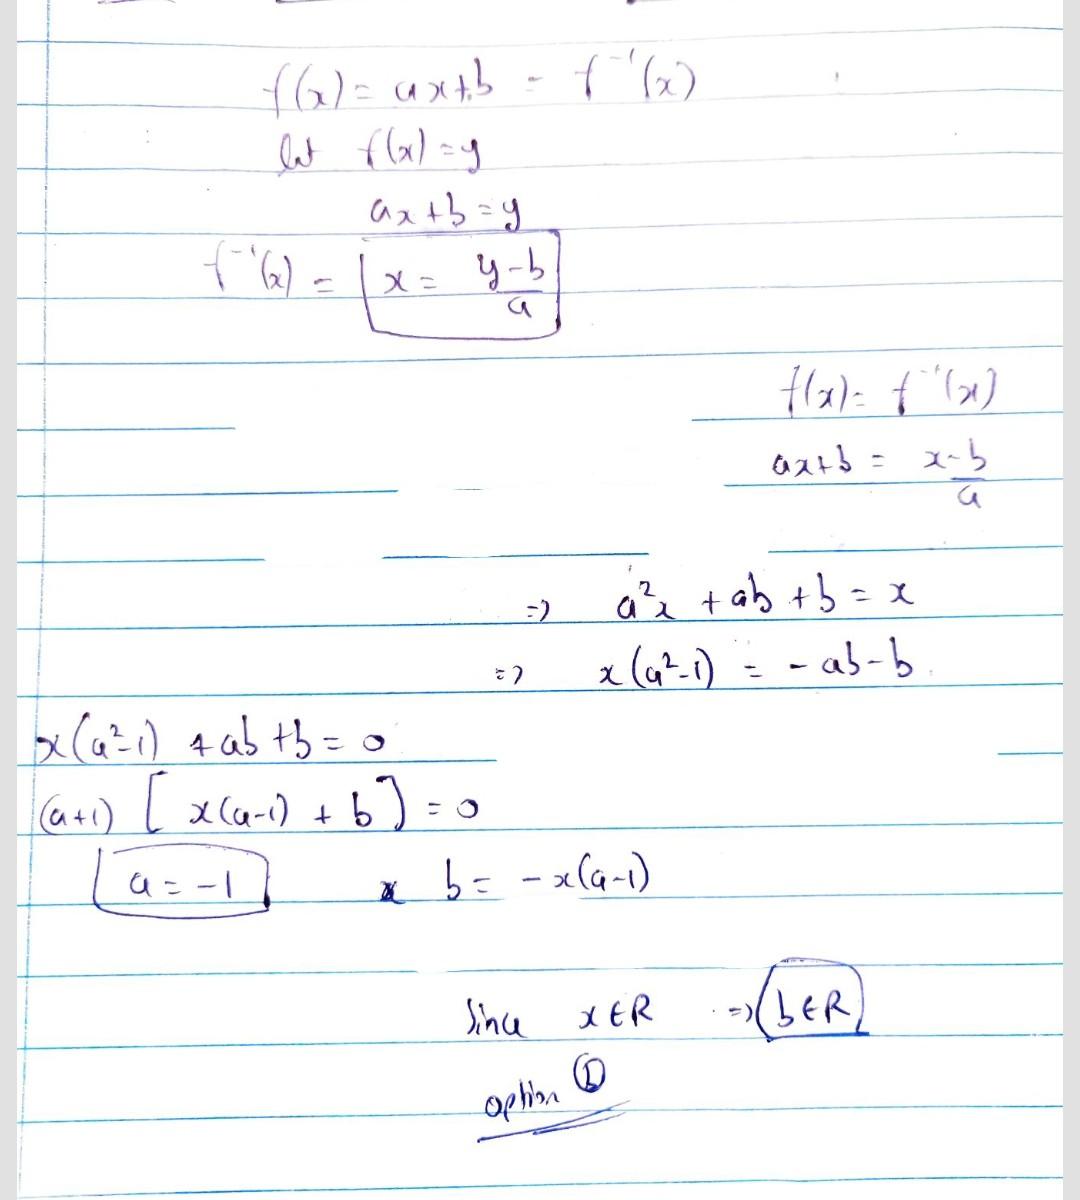 f(x) = ax+b = f⁻¹(x)
let f(x) = y
ax + b = y
f⁻¹(x) = x = y-b/a
f(x) = f⁻¹(x)
ax+b = x-b/a
=> a²x + ab + b = x
=> x(a²-1) = -ab-b
x(a²-1) + ab + b = 0
(a+1) [x(a-1) + b] = 0
a = -1 b = -x(a-1)
Since x ∈ R => b ∈ R
option ①